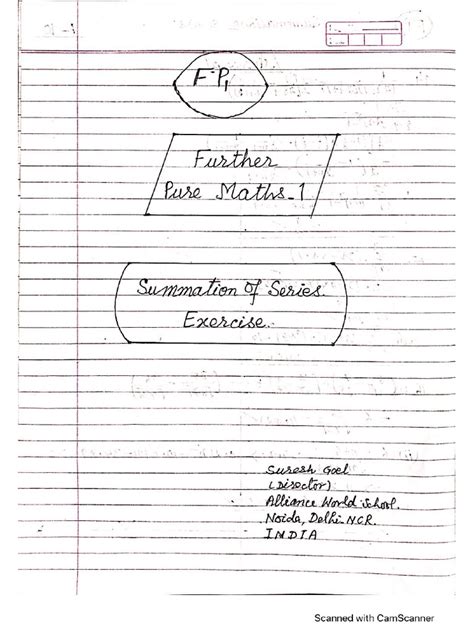 F P1
Further
Pure Maths-1
Summation of Series.
Exercise.
Suresh Goel
(Director)
Alliance World School.
Noida, Delhi N.C.R.
INDIA
Scanned with CamScanner